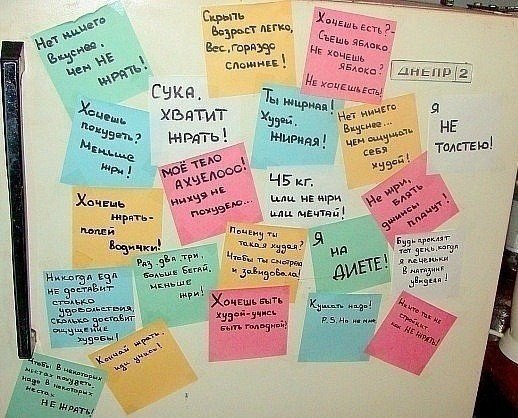 Нет ничего
вкуснее,
чем НЕ
ЖРАТЬ!
Скрыть
возраст легко,
Вес, гораздо
сложнее!
Хочешь есть?-
Съешь яблоко
Не хочешь
яблоко?
Не хочешь есть!
ДНЕПР 2
Хочешь
похудеть?
Меньше
жри!
СУКА,
ХВАТИТ
ЖРАТЬ!
Ты жирная!
Худей,
ЖИРНАЯ!
Нет ничего
Вкуснее...
чем ощущать
себя
худой!
Я
НЕ
ТОЛСТЕЮ!
Хочешь
жрать-
попей
водички!
МОЁ ТЕЛО
АХУЕЛООО!
нихуя не
похудело...
45 кг.
или не жри
или мечтай!
Не жри,
блять
джинсы
плачут!
Никогда Еда
не доставит
столько
удовольствия,
сколько доставит
ощущение
худобы!
Раз, два, три,
больше бегай,
меньше
жри!
Почему ты
такая худая?
Чтобы ты смотрела
и завидовала!
Я
НА
ДИЕТЕ!
Будь проклят
тот день, когда
я печеньки
в магазине
увидела!
Чтобы в некоторых
местах похудеть,
надо в некоторых
местах
НЕ ЖРАТЬ!
Кончай жрать,
иди учись!
Хочешь быть
худой-учись
быть голодной!
Кушать надо!
P.S. Но не мне
Ничто так не
стройнит
как НЕ ЖРАТЬ!